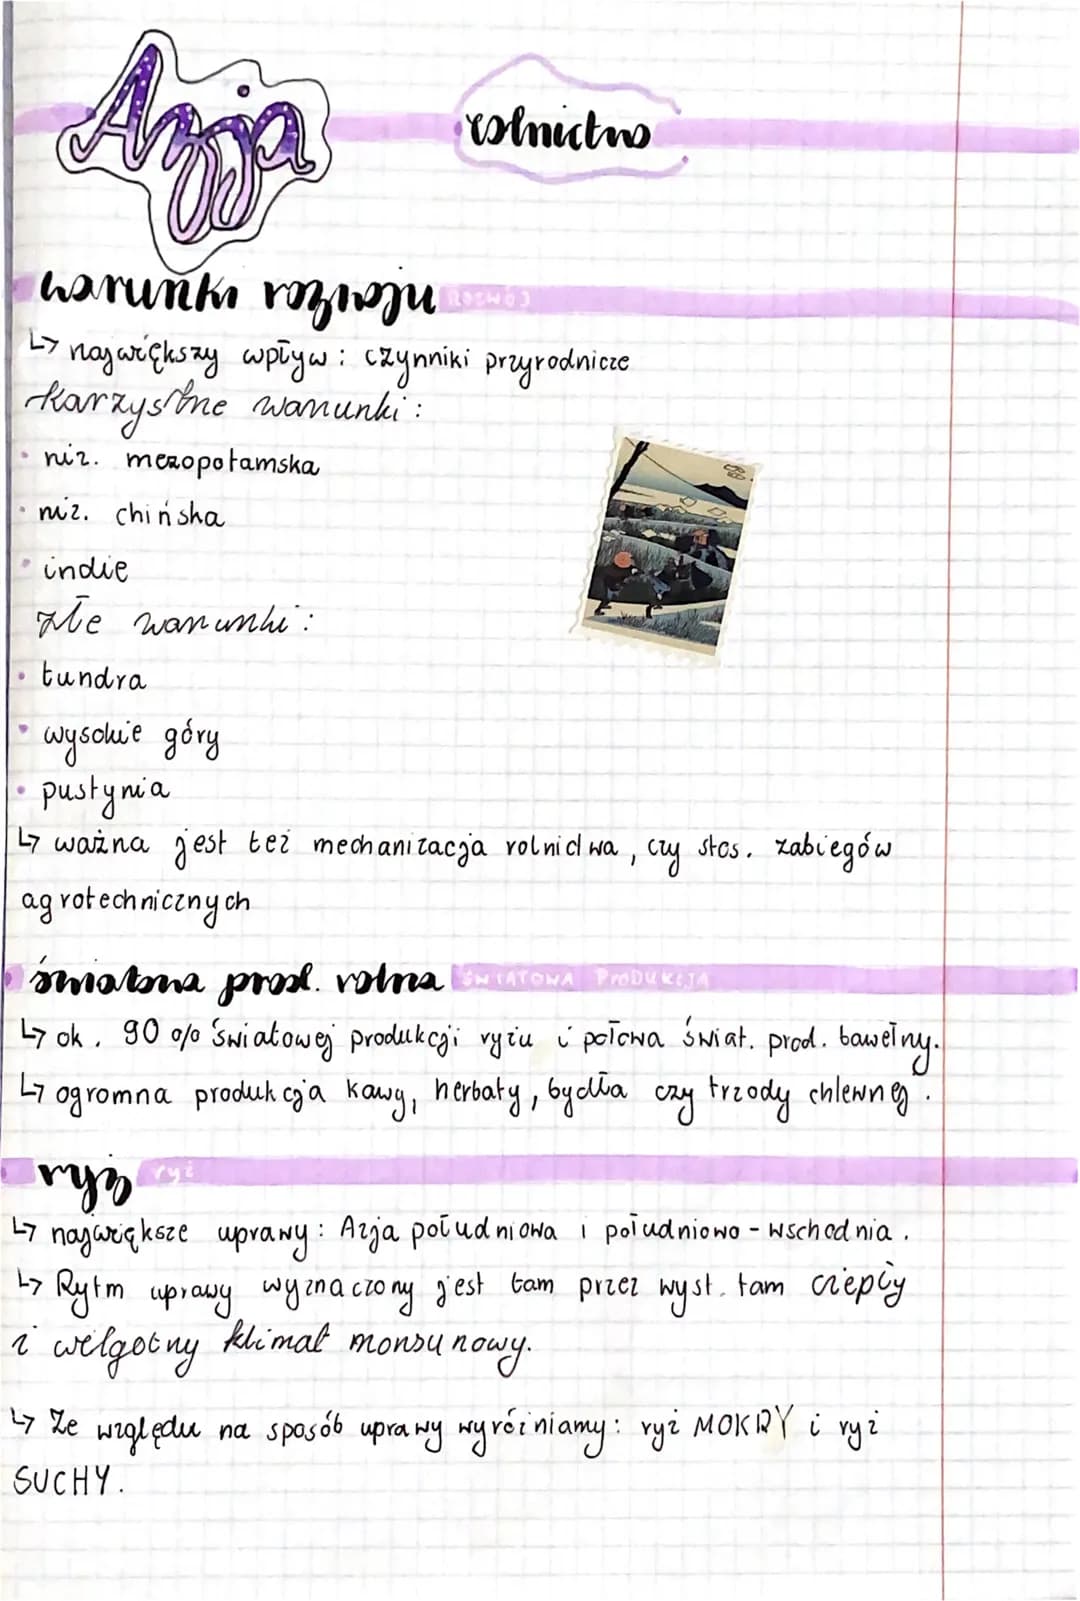 Azja
rolnictwo
warunki rozwoju ROZWÓJ
↳ największy wpływ: czynniki przyrodnicze
Korzystne warunki:
• niz. mezopotamska
• niz. chińska
• indie
złe warunki:
• tundra
• wysokie góry
• pustynia
↳ ważna jest też mechanizacja rolnictwa, czy stos. zabiegów
agrotechnicznych
światowa prod. rolna ŚWIATOWA PRODUKCJA
↳ ok. 90 % światowej produkcji ryżu i połowa świat. prod. bawełny.
↳ ogromna produkcja kawy, herbaty, bydła czy trzody chlewnej.
ryż ryż
↳ największe uprawy: Azja południowa i południowo-wschodnia.
↳ Rytm uprawy wyznaczony jest tam przez wyst. tam ciepły
i wilgotny klimat monsunowy.
↳ Ze względu na sposób uprawy wyróżniamy: ryż MOKRY i ryż
SUCHY.